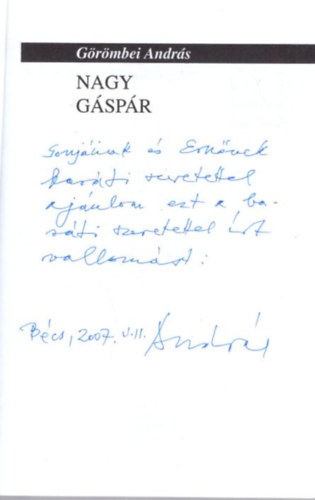 Görömbei András
NAGY
GÁSPÁR
Sonjának és Ernőnek
baráti szeretettel
ajánlom ezt a ba-
ráti szeretettel írt
vallomást:
Bécs, 2007. V. 11. András